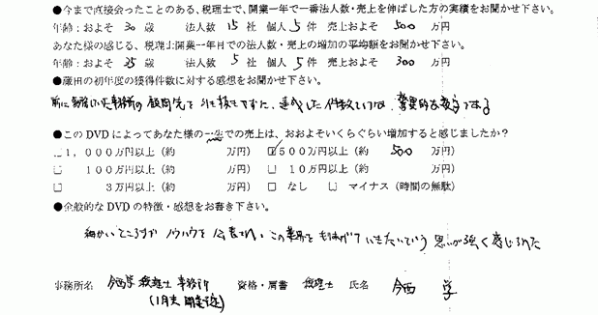 ●今まで直接会ったことのある、税理士で、開業一年で一番法人数・売上を伸ばした方の実績をお聞かせ下さい。
年齢:およそ 30 歳 法人数 15 社 個人 5 件 売上およそ 500 万円
あなた様の感じる、税理士開業一年目での法人数・売上の増加の平均額をお聞かせ下さい。
年齢:およそ 35 歳 法人数 5 社 個人 5 件 売上およそ 300 万円
●藤田の初年度の獲得件数に対する感想をお聞かせ下さい。
前に勤務していた事務所の顧問先を引き継がずに、達成した件数というのは、驚異的な数字である
●このDVDによってあなた様の一生での売上は、おおよそいくらぐらい増加すると感じましたか?
□1,000万円以上(約 万円) ☑500万円以上(約 500 万円)
□ 100万円以上(約 万円) □ 10万円以上(約 万円)
□ 3万円以上(約 万円) □ なし □ マイナス(時間の無駄)
●全般的なDVDの特徴・感想をお書き下さい。
細かいところまでノウハウを公表され、この業界をもりあげていきたいという思いが強く感じられた
事務所名 今西学税理士事務所 資格・肩書 税理士 氏名 今西 学
(1月末 開業予定)